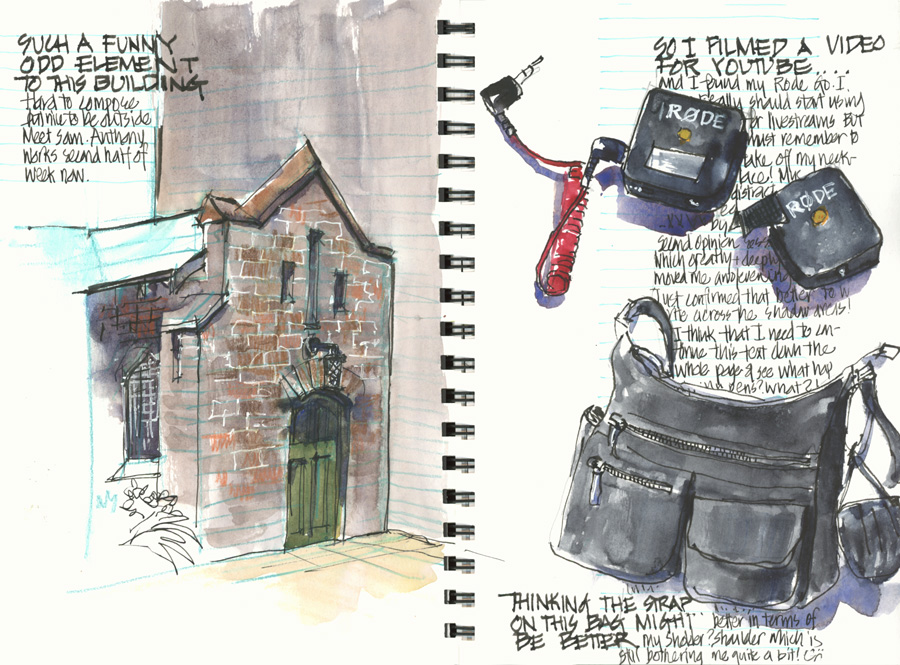 SUCH A FUNNY
ODD ELEMENT
TO THIS BUILDING
Hard to compose
Funnie to be outside
Meet Sam. Anthony
works second half of
week now.
SO I FILMED A VIDEO
FOR YOUTUBE....
and I found my Rode Go. I
really should start using
for livestreams But
must remember to
take off my neck-
lace!
RØDE
RØDE
by
second opinion
which greatly + deeply
moved me and even
Just confirmed that better to
across the shadow areas!
I think that I need to con-
tinue this text down the
whole page & see what hap
pens? what?!
THINKING THE STRAP
ON THIS BAG MIGHT
BE BETTER
better in terms of
my sholder? shoulder which is
still bothering me quite a bit!